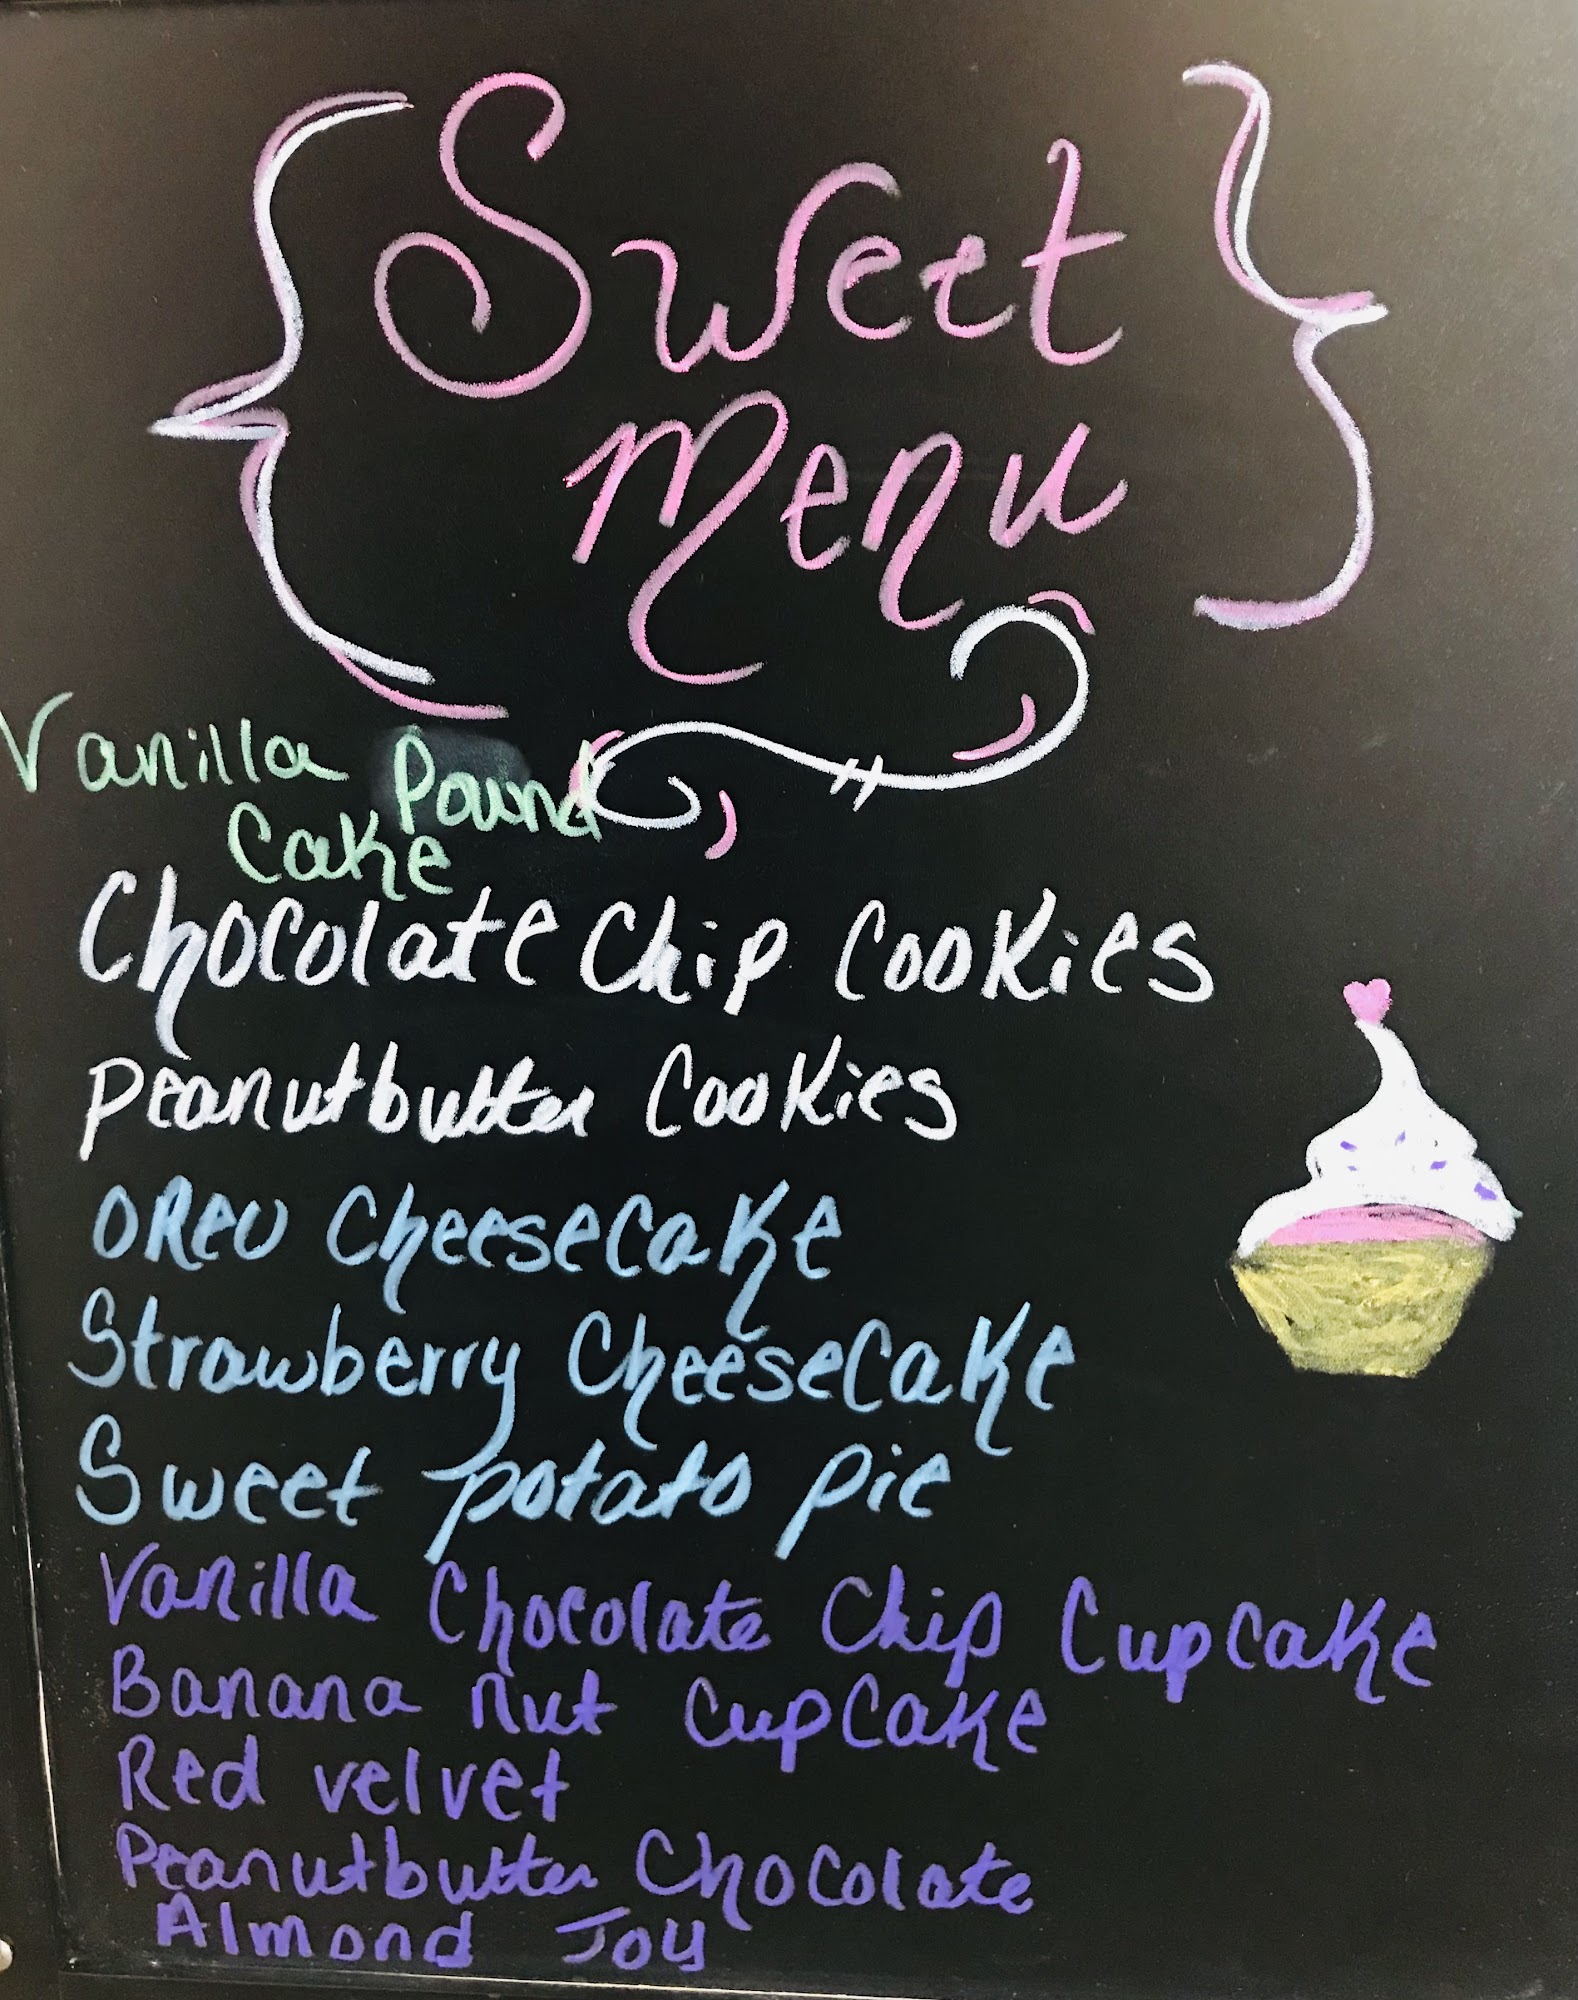 Sweet
Menu
Vanilla Pound
Cake
Chocolate Chip Cookies
Peanutbutter Cookies
OREO Cheesecake
Strawberry Cheesecake
Sweet potato pie
Vanilla Chocolate Chip Cupcake
Banana nut Cupcake
Red velvet
Peanutbutter Chocolate
Almond Joy